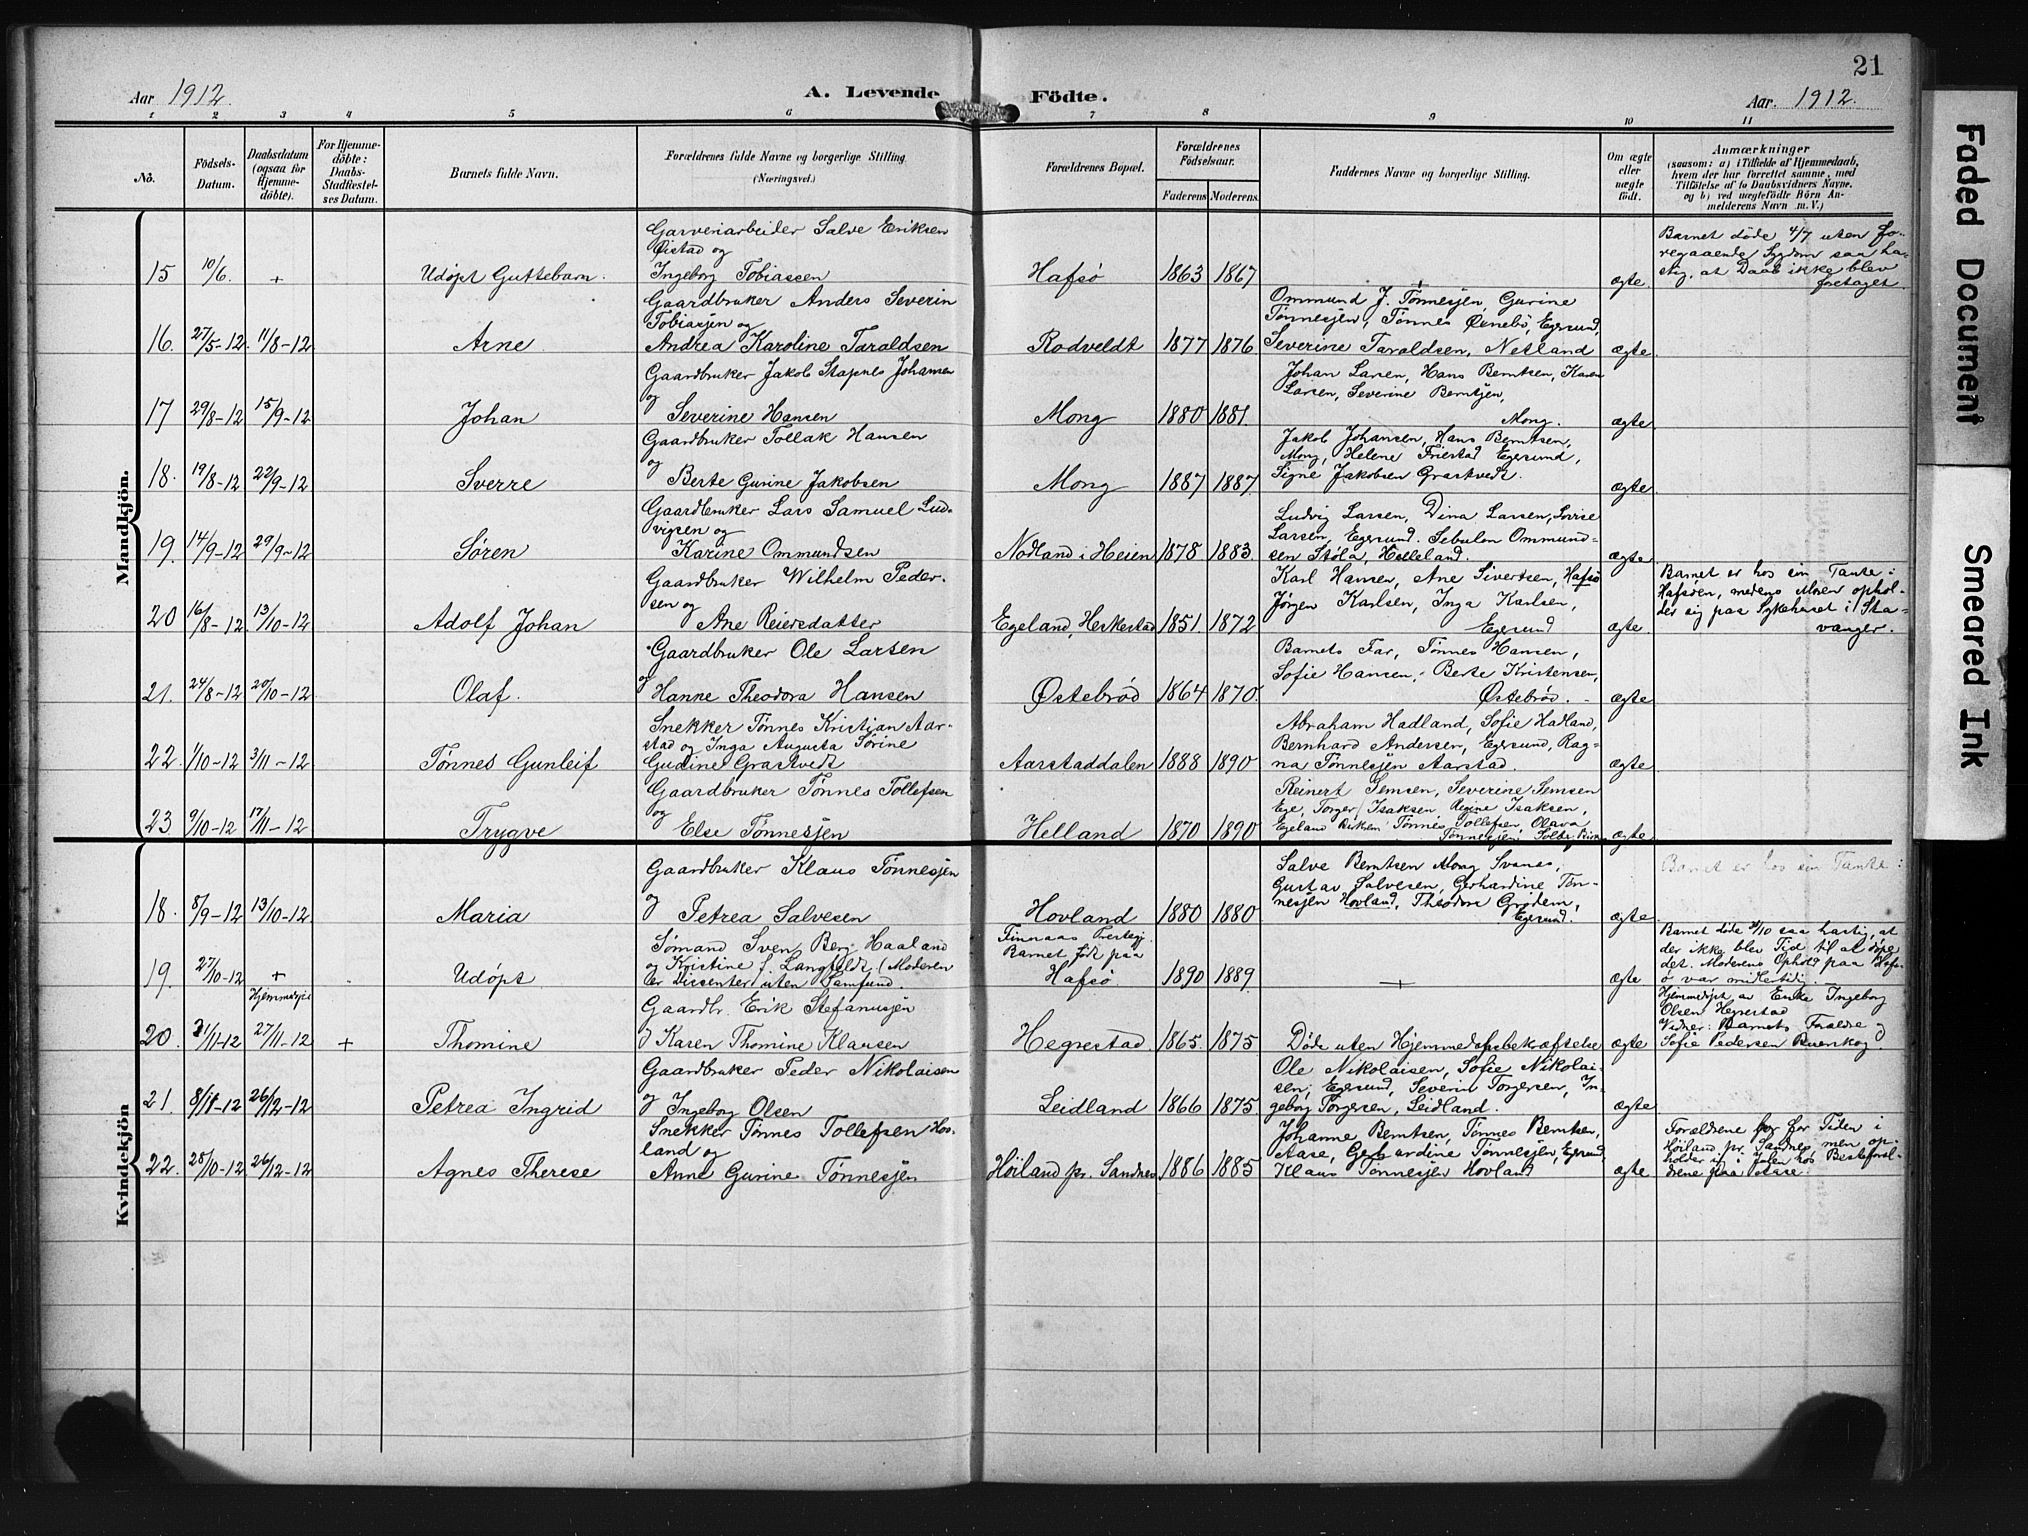 21
Aar 1912.
A. Levende Födte.
Aar. 1912.
1 2 3 4 5 6 7 8 9 10 11
No.
Födsels-Datum.
Daabsdatum (ogsaa for Hjemme-döbte).
For Hjemme-döbte: Daabs-Stadfæstel-ses Datum.
Barnets fulde Navn.
Forældrenes fulde Navne og borgerlige Stilling.
(Næringsvei.)
Forældrenes Bopæl.
Forældrenes Födselsaar.
Faderens Moderens
Faddernes Navne og borgerlige Stilling.
Om ægte eller uægte födt.
Anmærkninger
(saasom: a) i Tilfælde af Hjemmedaab,
hvem der har forrettet samme, med
Tilföielse af to Daabsvidners Navne,
og b) ved uægtefödte Börn An-
melderens Navn m. V.)
Mandkjön.
15 10/6. + Udøpt Guttebarn.
Garveriarbeider Salve Eriksen
Øistad og
Ingeborg Tobiassen
Hafsø 1863 1867 + ægte
Barnet døde 4/7 uten fo-
regaaende Sygdom saa ha-
stig, at Daab ikke blev
foretaget.
16. 27/5-12. 11/8-12 Arne
Gaardbruker Anders Severin
Tobiasjen og
Andrea Karoline Taraldsen
Rodveldt 1877 1876
Ommund J. Tønnesjen, Gurine
Tønnesjen, Tønnes Ørnebø, Egersund,
Severine Taraldsen, Netland
ægte.
17 29/8-12 15/9-12 Johan
Gaardbruker Jakob Stapnes Johansen
og
Severine Hansen
Mong 1880 1881.
Johan Larsen, Hans Berntsen, Karen
Larsen, Severine Berntsen,
Mong.
ægte
18. 19/8-12 22/9-12 Sverre
Gaardbruker Tollak Hansen
og
Berte Gurine Jakobsen
Mong 1887 1887.
Jakob Johansen, Hans Berntsen,
Mong, Helene Friestad Egersund,
Signe Jakobsen Grastvedt.
ægte.
19. 14/9-12 29/9-12 Søren
Gaardbruker Lars Samuel Lud-
vigsen og
Karine Ommundsen
Nodland i Heien 1878 1883
Ludvig Larsen, Dina Larsen, Lovise
Larsen, Egersund. Sebulon Ommund-
sen Støla, Helleland.
ægte.
20 16/8-12. 13/10-12 Adolf Johan
Gaardbruker Wilhelm Peder-
sen og
Ane Reiersdatter
Egeland, Heskestad 1851. 1872
Karl Hansen, Ane Sivertsen, Hafsø
Jørgen Karlsen, Inga Karlsen,
Egersund
ægte.
Barnet er hos sin Tante i
Hafsøen, medens Moren ophol-
der sig paa Sykehuset i Sta-
vanger.
21. 24/8-12 20/10-12 Olaf.
Gaardbruker Ole Larsen
og
Hanne Theodora Hansen
Østebrød 1864 1870.
Barnets Far, Tønnes Hansen,
Sofie Hansen, Berte Kristensen,
Østebrød.
ægte
22. 1/10-12 3/11-12 Tønnes Gunleif
Snekker Tønnes Kristian Aar-
stad og Inga Augusta Sørine
Gudine Grastvedt
Aarstaddalen 1888 1890
Abraham Hadland, Sofie Hadland,
Bernhard Andersen, Egersund, Rag-
na Tønnesjen Aarstad.
ægte
23 9/10-12 17/11-12 Trygve
Gaardbruker Tønnes Tollefsen
og
Else Tønnesjen
Helland 1870 1890
Reinert Semsen, Severine Semsen
Ege, Torger Isaksen, Regine Isaksen,
Egeland Birkem Tønnes Tollefsen, Olava
Tønnesjen,
ægte
Kvindekjön
18. 8/9-12 13/10-12 Maria
Gaardbruker Klaus Tønnesjen
og
Petrea Salvesen
Hovland 1880 1880
Salve Berntsen Mong Svanes,
Gustav Salvesen, Gerhardine Tøn-
nesjen Hovland, Theodora Grødem,
Egersund.
ægte
Barnet er hos sin Tante
19. 27/10-12 + Udøpt
Sømand Sven Berg Haaland
og Kristine f. Langfeldt (Moderen
er Dissenter uten Samfund.
Finnaas Prestegj.
Barnet født paa
Hafsø
1890 1889 + ægte
Barnet døde /10 saa hastig, at
der ikke blev Tid til at døpe
det. Moderens Ophold paa Hafs-
ø var midlertidig.
20. 21/11-12 Hjemmedøpt 27/11-12 + Thomine
Gaardbr. Erik Stefanusjen
og Karen Thomine Klausen
Hegrestad. 1865. 1875
Døde uten Hjemmedaabsbekræftelse
ægte
Hjemmedøpt av Enke Ingeborg
Olsen Hegrestad
Vidner: Barnets Forældre og
Sofie Pedersen Buerskog.
21. 8/11-12 26/12-12 Petrea Ingrid
Gaardbruker Peder Nikolaisen
og Ingeborg Olsen
Leidland 1866 1875
Ole Nikolaisen, Sofie Nikolai-
sen, Egersund, Severin Torgersen, In-
geborg Torgersen, Leidland.
ægte
22. 28/10-12 26/12-12 Agnes Therese
Snekker Tønnes Tollefsen Hov-
land og
Anne Gurine Tønnesjen
Høiland pr. Sandnes 1886 1885
Johanne Berntsen, Tønnes Berntsen,
Aase, Gerhardine Tønnesjen, Egersund,
Klaus Tønnesjen Hovland
ægte
Forældrene bor for Tiden i
Høiland pr. Sandnes men op-
holder sig i Julen hos Besteforel-
drene paa Aase.
Faded Document
Smeared Ink